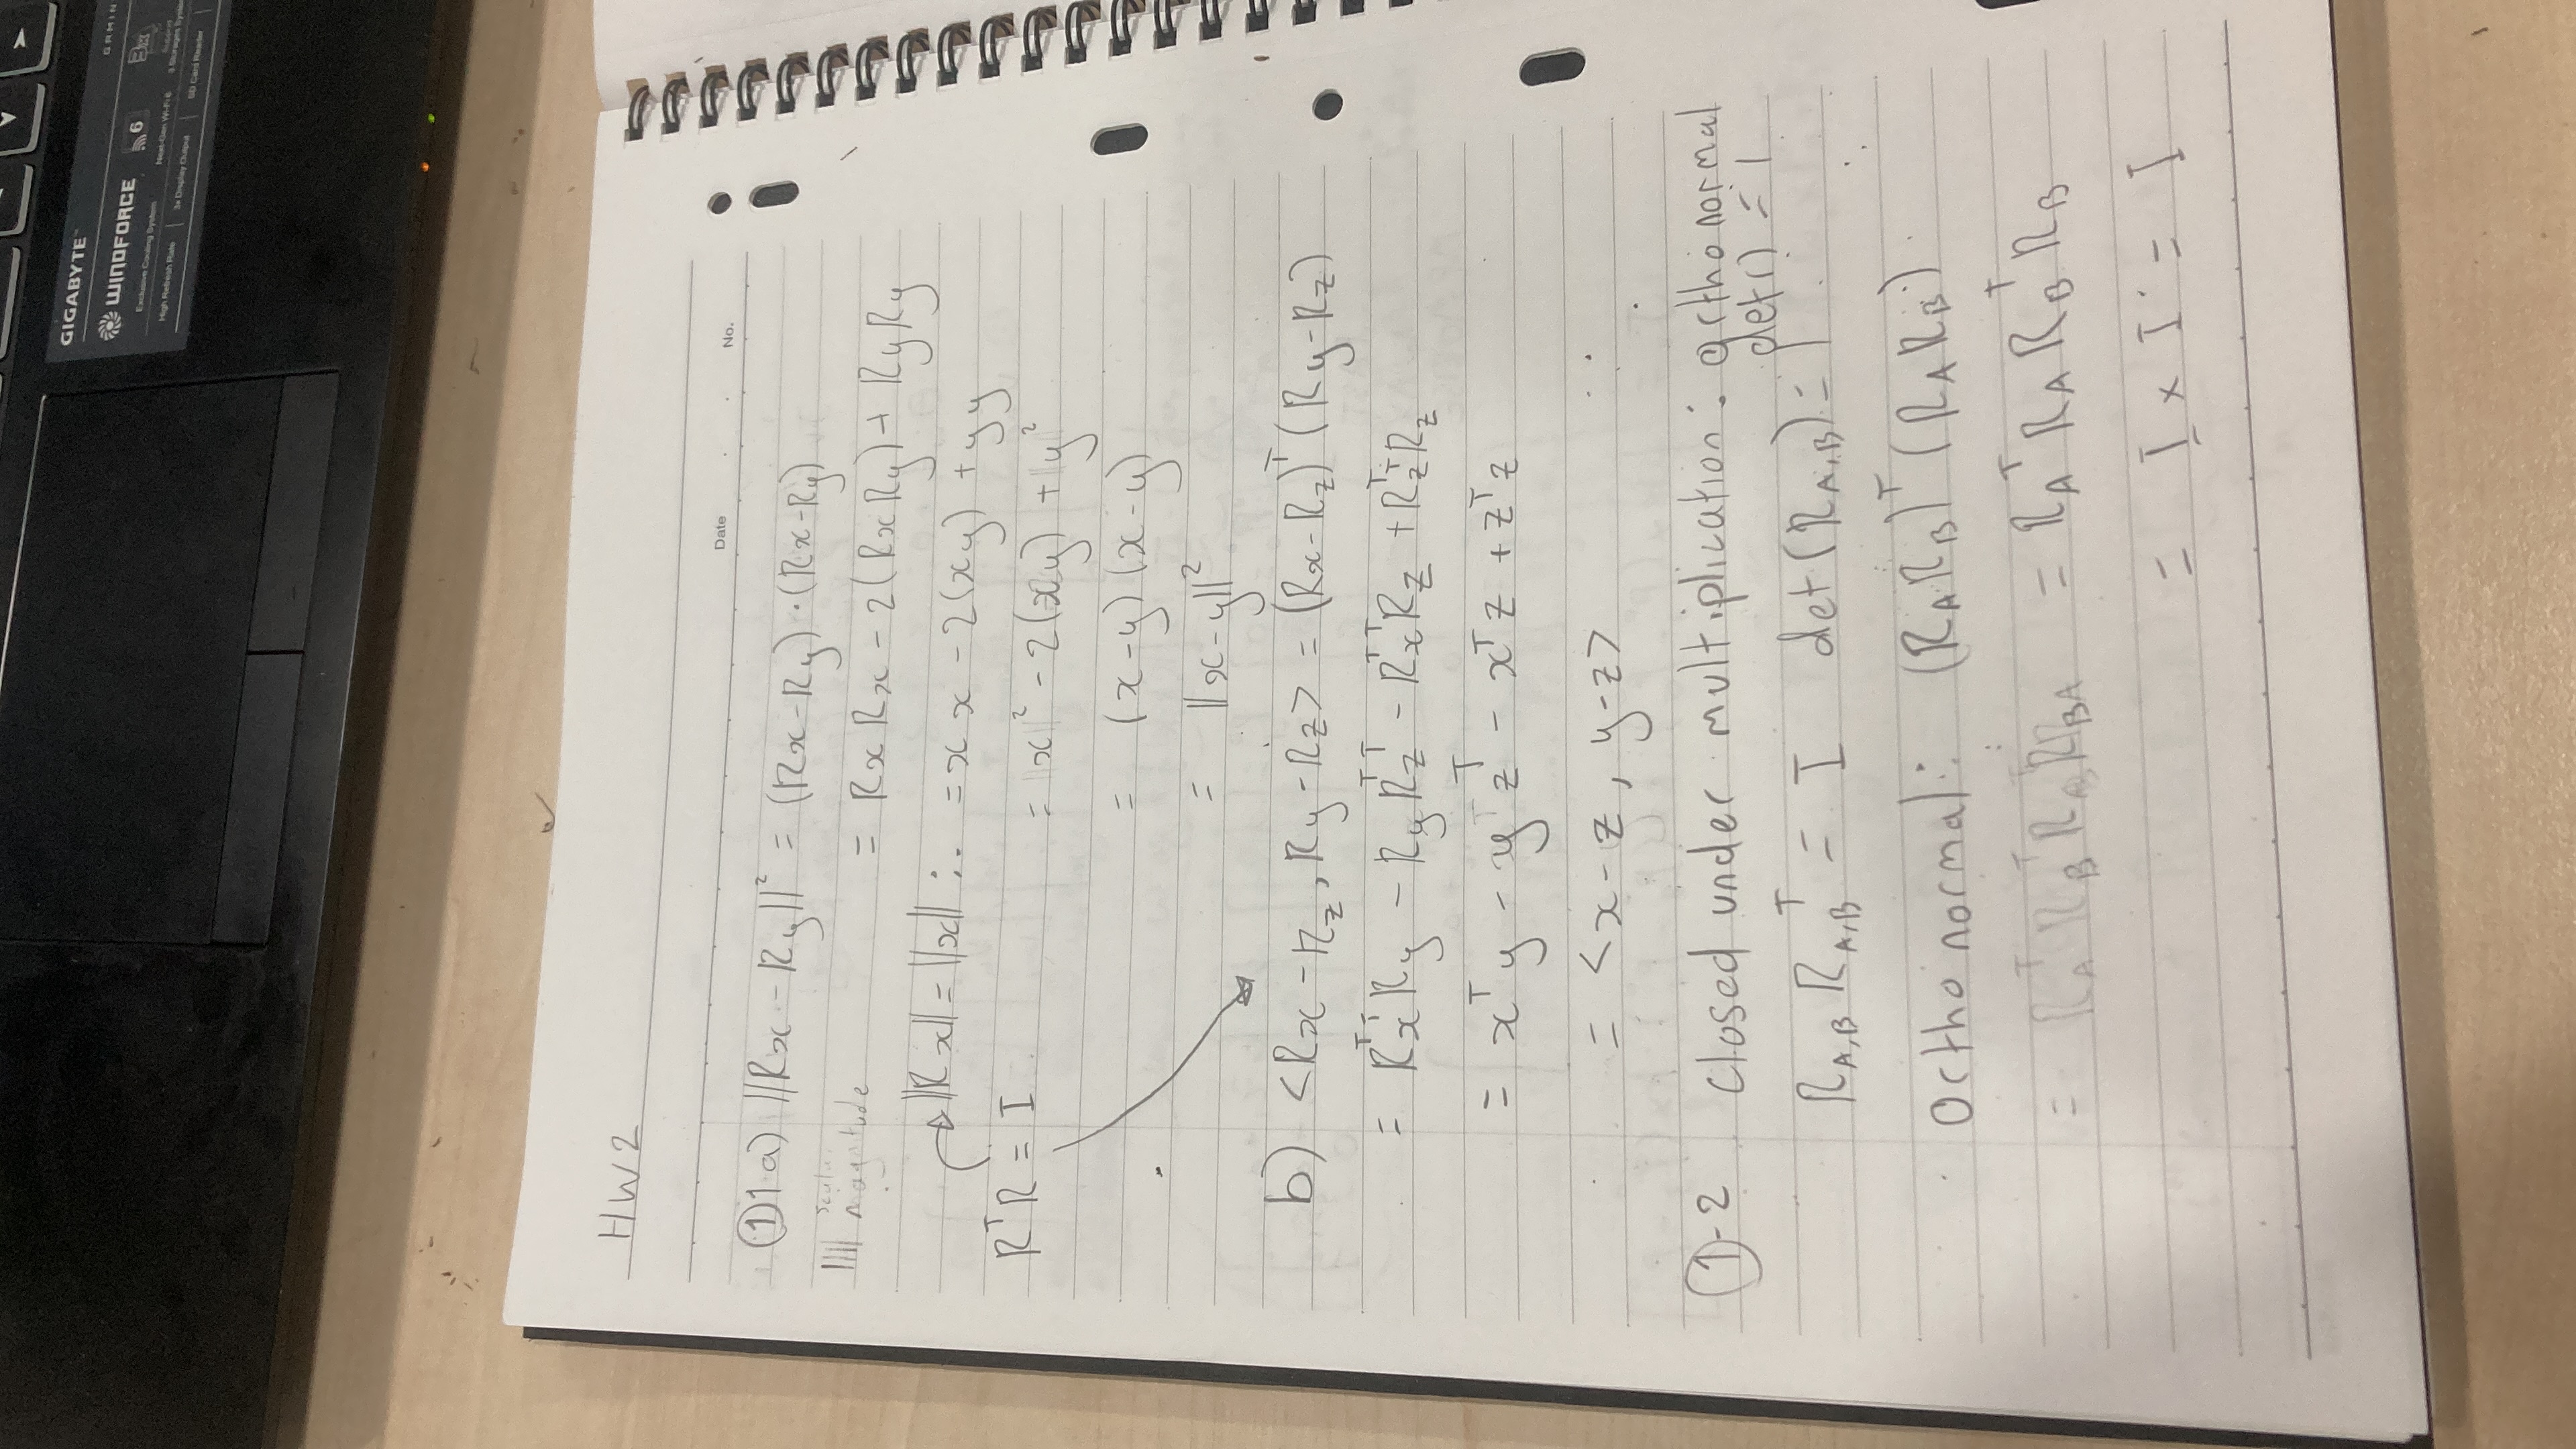 GIGABYTE
GAMIN
WINDFORCE
6
Exclusive Cooling System
Next-Gen Wi-Fi 6
High Refresh Rate
3x Display Output
SD Card Reader
HW2
Date . . No.
① 1 a) ||Rx - Ry||² = (Rx-Ry)·(Rx-Ry)
|||| scalar magnitude
= RxRx - 2(RxRy) + RyRy
||Rx|| = ||x|| ∴ = x x - 2(xy) + yy
RᵀR = I
= ||x||² - 2(xy) + ||y||²
= (x-y)(x-y)
= ||x-y||²
b) <Rx - Rz, Ry - Rz> = (Rx-Rz)ᵀ(Ry-Rz)
= RᵀxᵀRy - RyRᵀzᵀ - RᵀxᵀRz + RᵀzᵀRz
= xᵀy - yzᵀ - xᵀz + zᵀz
= <x-z, y-z>
①-2 Closed under multiplication: orthonormal
det() = 1
R_A,B R_A,Bᵀ = I det(R_A,B) = 1
Orthonormal: (R_A R_B)ᵀ (R_A R_B)
= R_Aᵀ R_A R_Bᵀ R_B
= I × I = I